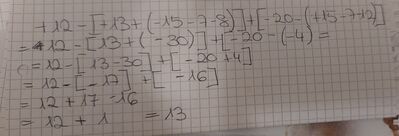 +12-[+13+(-15-7-8)]+[-20-(+15-7-12)]
=+12-[13+(-30)]+[-20-(-4)=
=12-[13-30]+[-20+4]
=12-[-17]+[-16]
=12+17-16
=12+1 =13